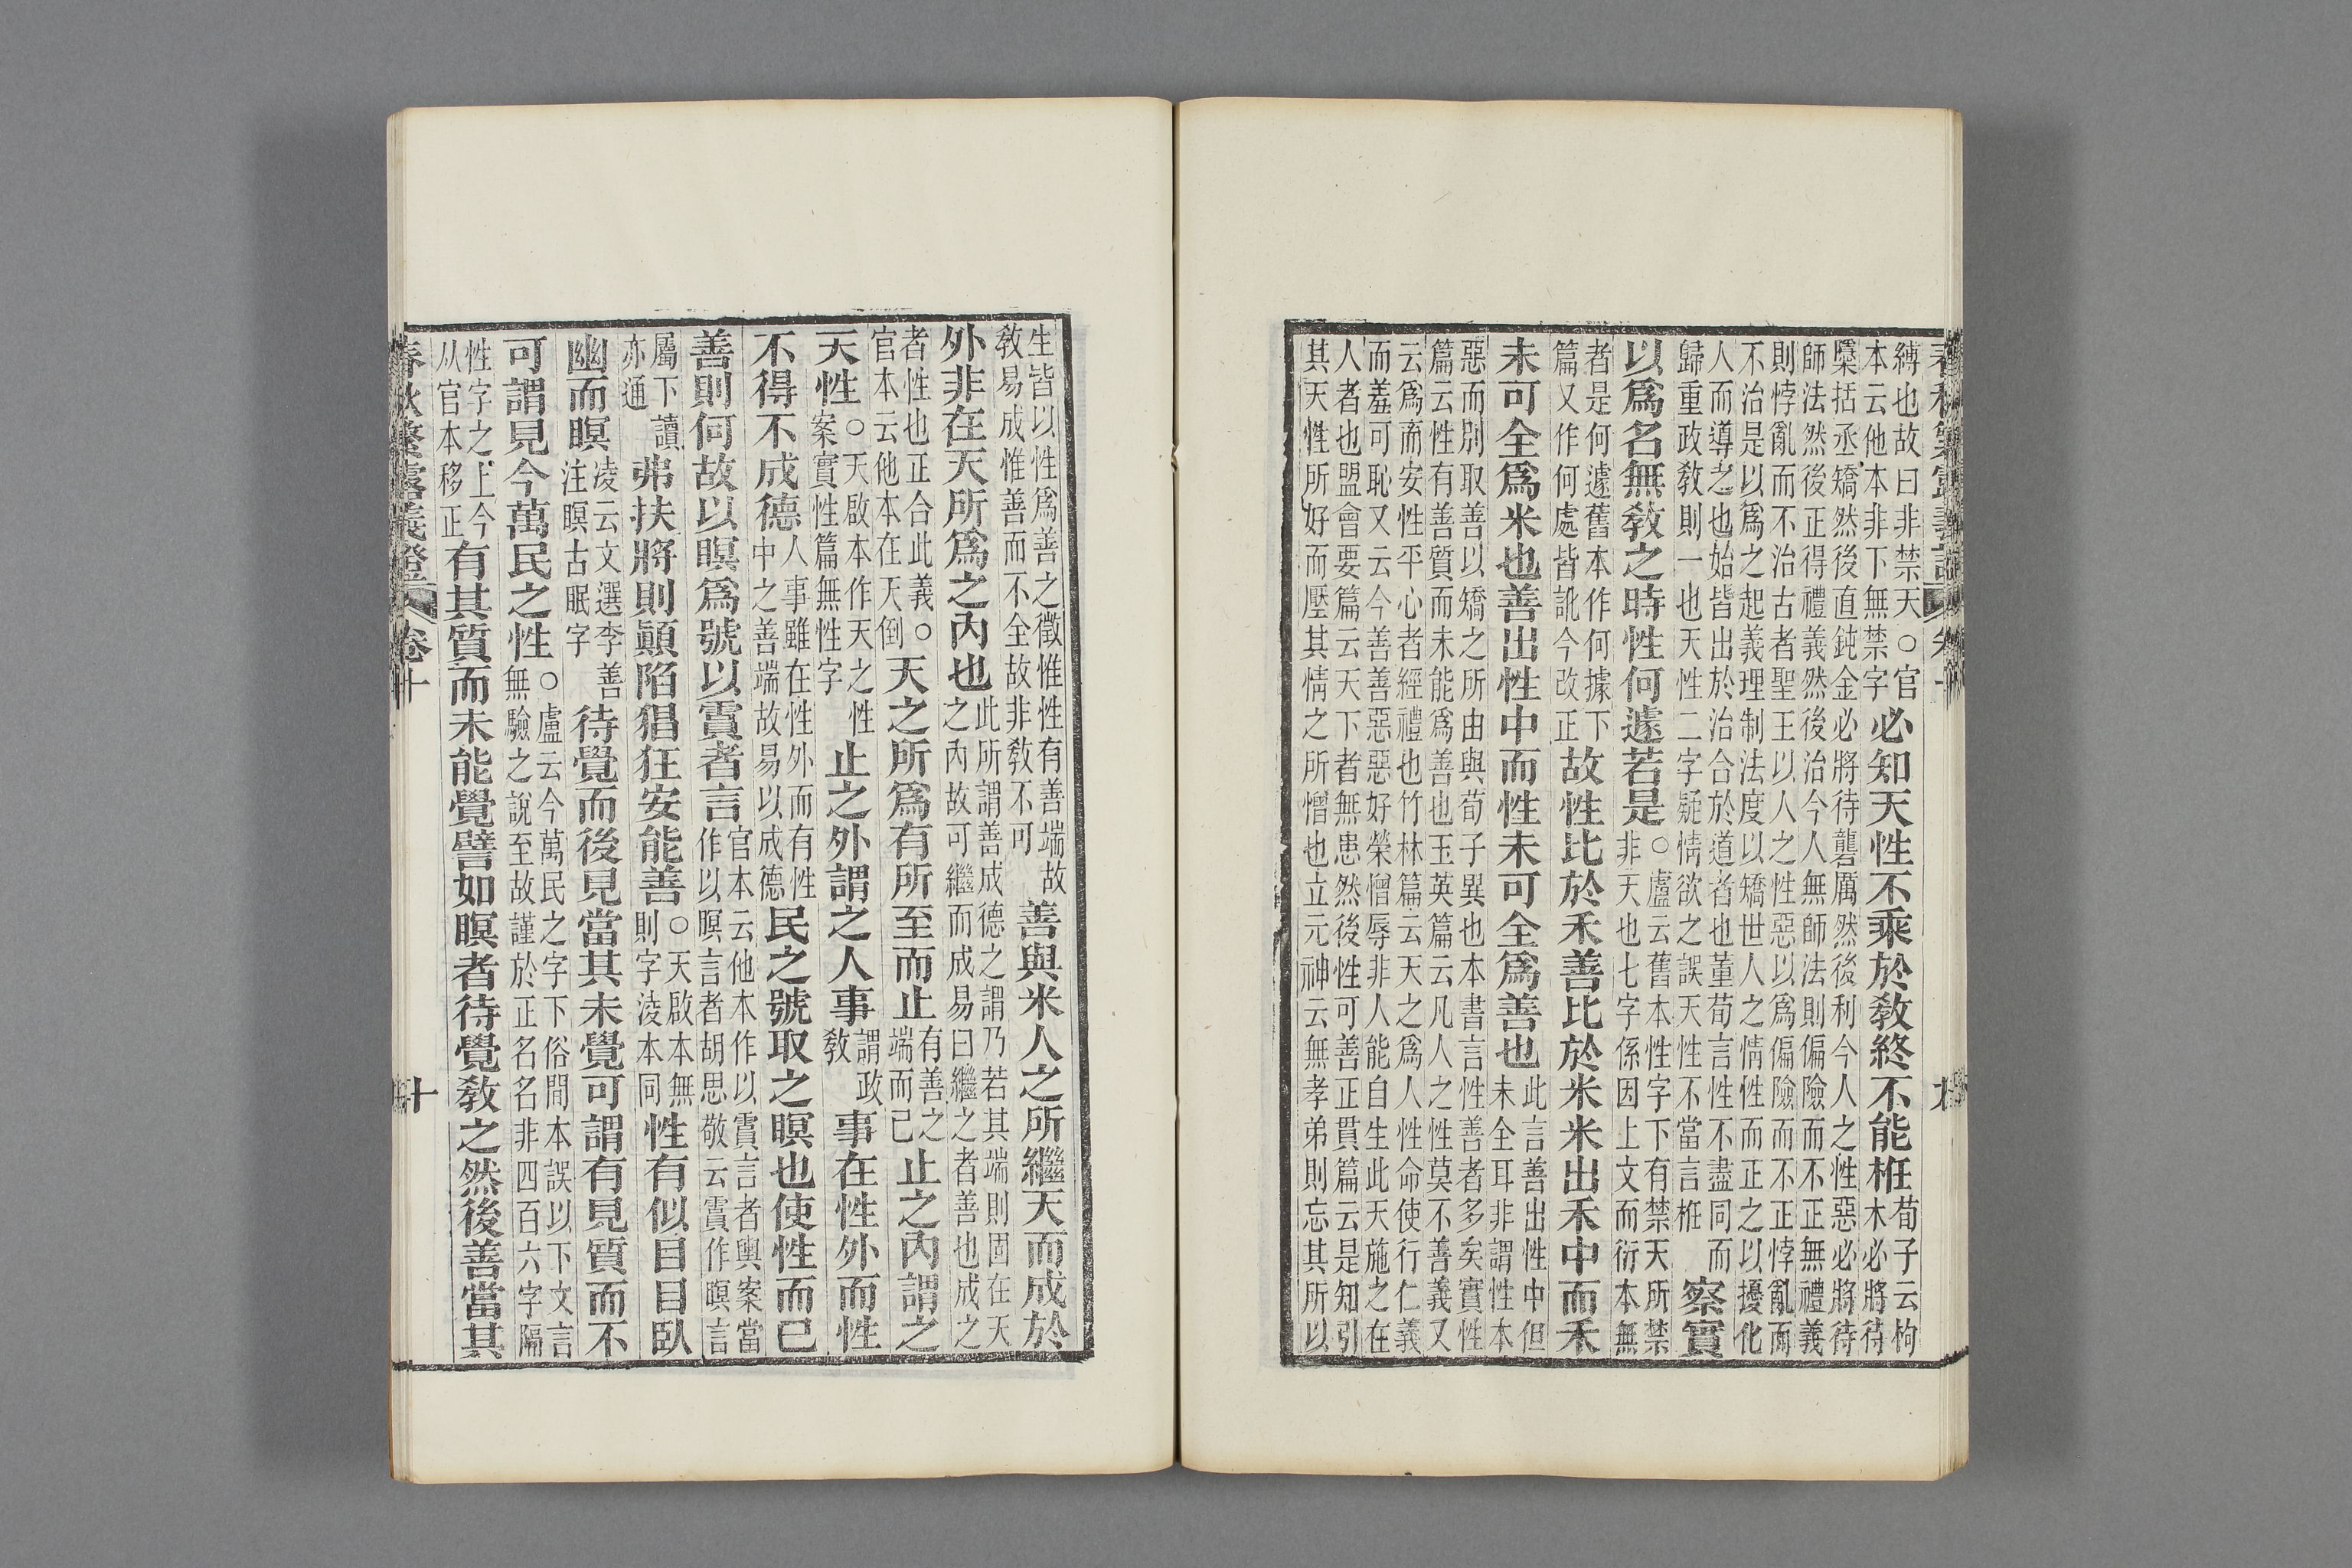 春秋繁露義證 卷十 九
縛也故曰非禁天○官
本云他本非下無禁字
必知天性不乘於敎終不能桎
荀子云枸
木必將待
檃括烝矯然後直鈍金必將待礱厲然後利今人之性惡必將待
師法然後正得禮義然後治今人無師法則偏險而不正無禮義
則悖亂而不治古者聖王以人之性惡以爲偏險而不正悖亂而
不治是以爲之起義理制法度以矯世人之情性而正之以擾化
人而導之也始皆出於治合於道者也董荀言性不盡同而
歸重政敎則一也天性二字疑情欲之誤天性不當言桎
察實
以爲名無敎之時性何遽若是
○盧云舊本性字下有禁天所禁
非天也七字係因上文而衍本無
者是何遽舊本作何據下
篇又作何處皆訛今改正
故性比於禾善比於米米出禾中而禾
未可全爲米也善出性中而性未可全爲善也
此言善出性中但
未全耳非謂性本
惡而別取善以矯之所由與荀子異也本書言性善者多矣實性
篇云性有善質而未能爲善也玉英篇云凡人之性莫不善義又
云爲而安性平心者經禮也竹林篇云天之爲人性命使行仁義
而羞可恥又云今善善惡惡好榮憎辱非人能自生此天施之在
人者也盟會要篇云天下者無患然後性可善正貫篇云是知引
其天性所好而壓其情之所憎也立元神云無孝弟則忘其所以
生皆以性爲善之徵惟性有善端故
敎易成惟善而不全故非敎不可
善與米人之所繼天而成於
外非在天所爲之內也
此所謂善成德之謂乃若其端則固在天
之內故可繼而成易曰繼之者善也成之
者性也正合此義○
官本云他本在天倒
天之所爲有所至而止
有善之
端而已
止之內謂之
天性
○天啟本作天之性
案實性篇無性字
止之外謂之人事
謂政
敎
事在性外而性
不得不成德
人事雖在性外而有性
中之善端故易以成德
民之號取之瞑也使性而已
善則何故以瞑爲號以霣者言
官本云他本作以霣言者輿案當
作以瞑言者胡思敬云霣作瞑言
屬下讀
亦通
弗扶將則顚陷猖狂安能善
○天啟本無
則字淩本同
性有似目目臥
幽而瞑
凌云文選李善
注瞑古眠字
待覺而後見當其未覺可謂有見質而不
可謂見今萬民之性
○盧云今萬民之字下俗間本誤以下文言
無驗之說至故謹於正名名非四百六字隔
性字之上今
从官本移正
有其質而未能覺譬如瞑者待覺敎之然後善當其
春秋繁露義證 卷十 十